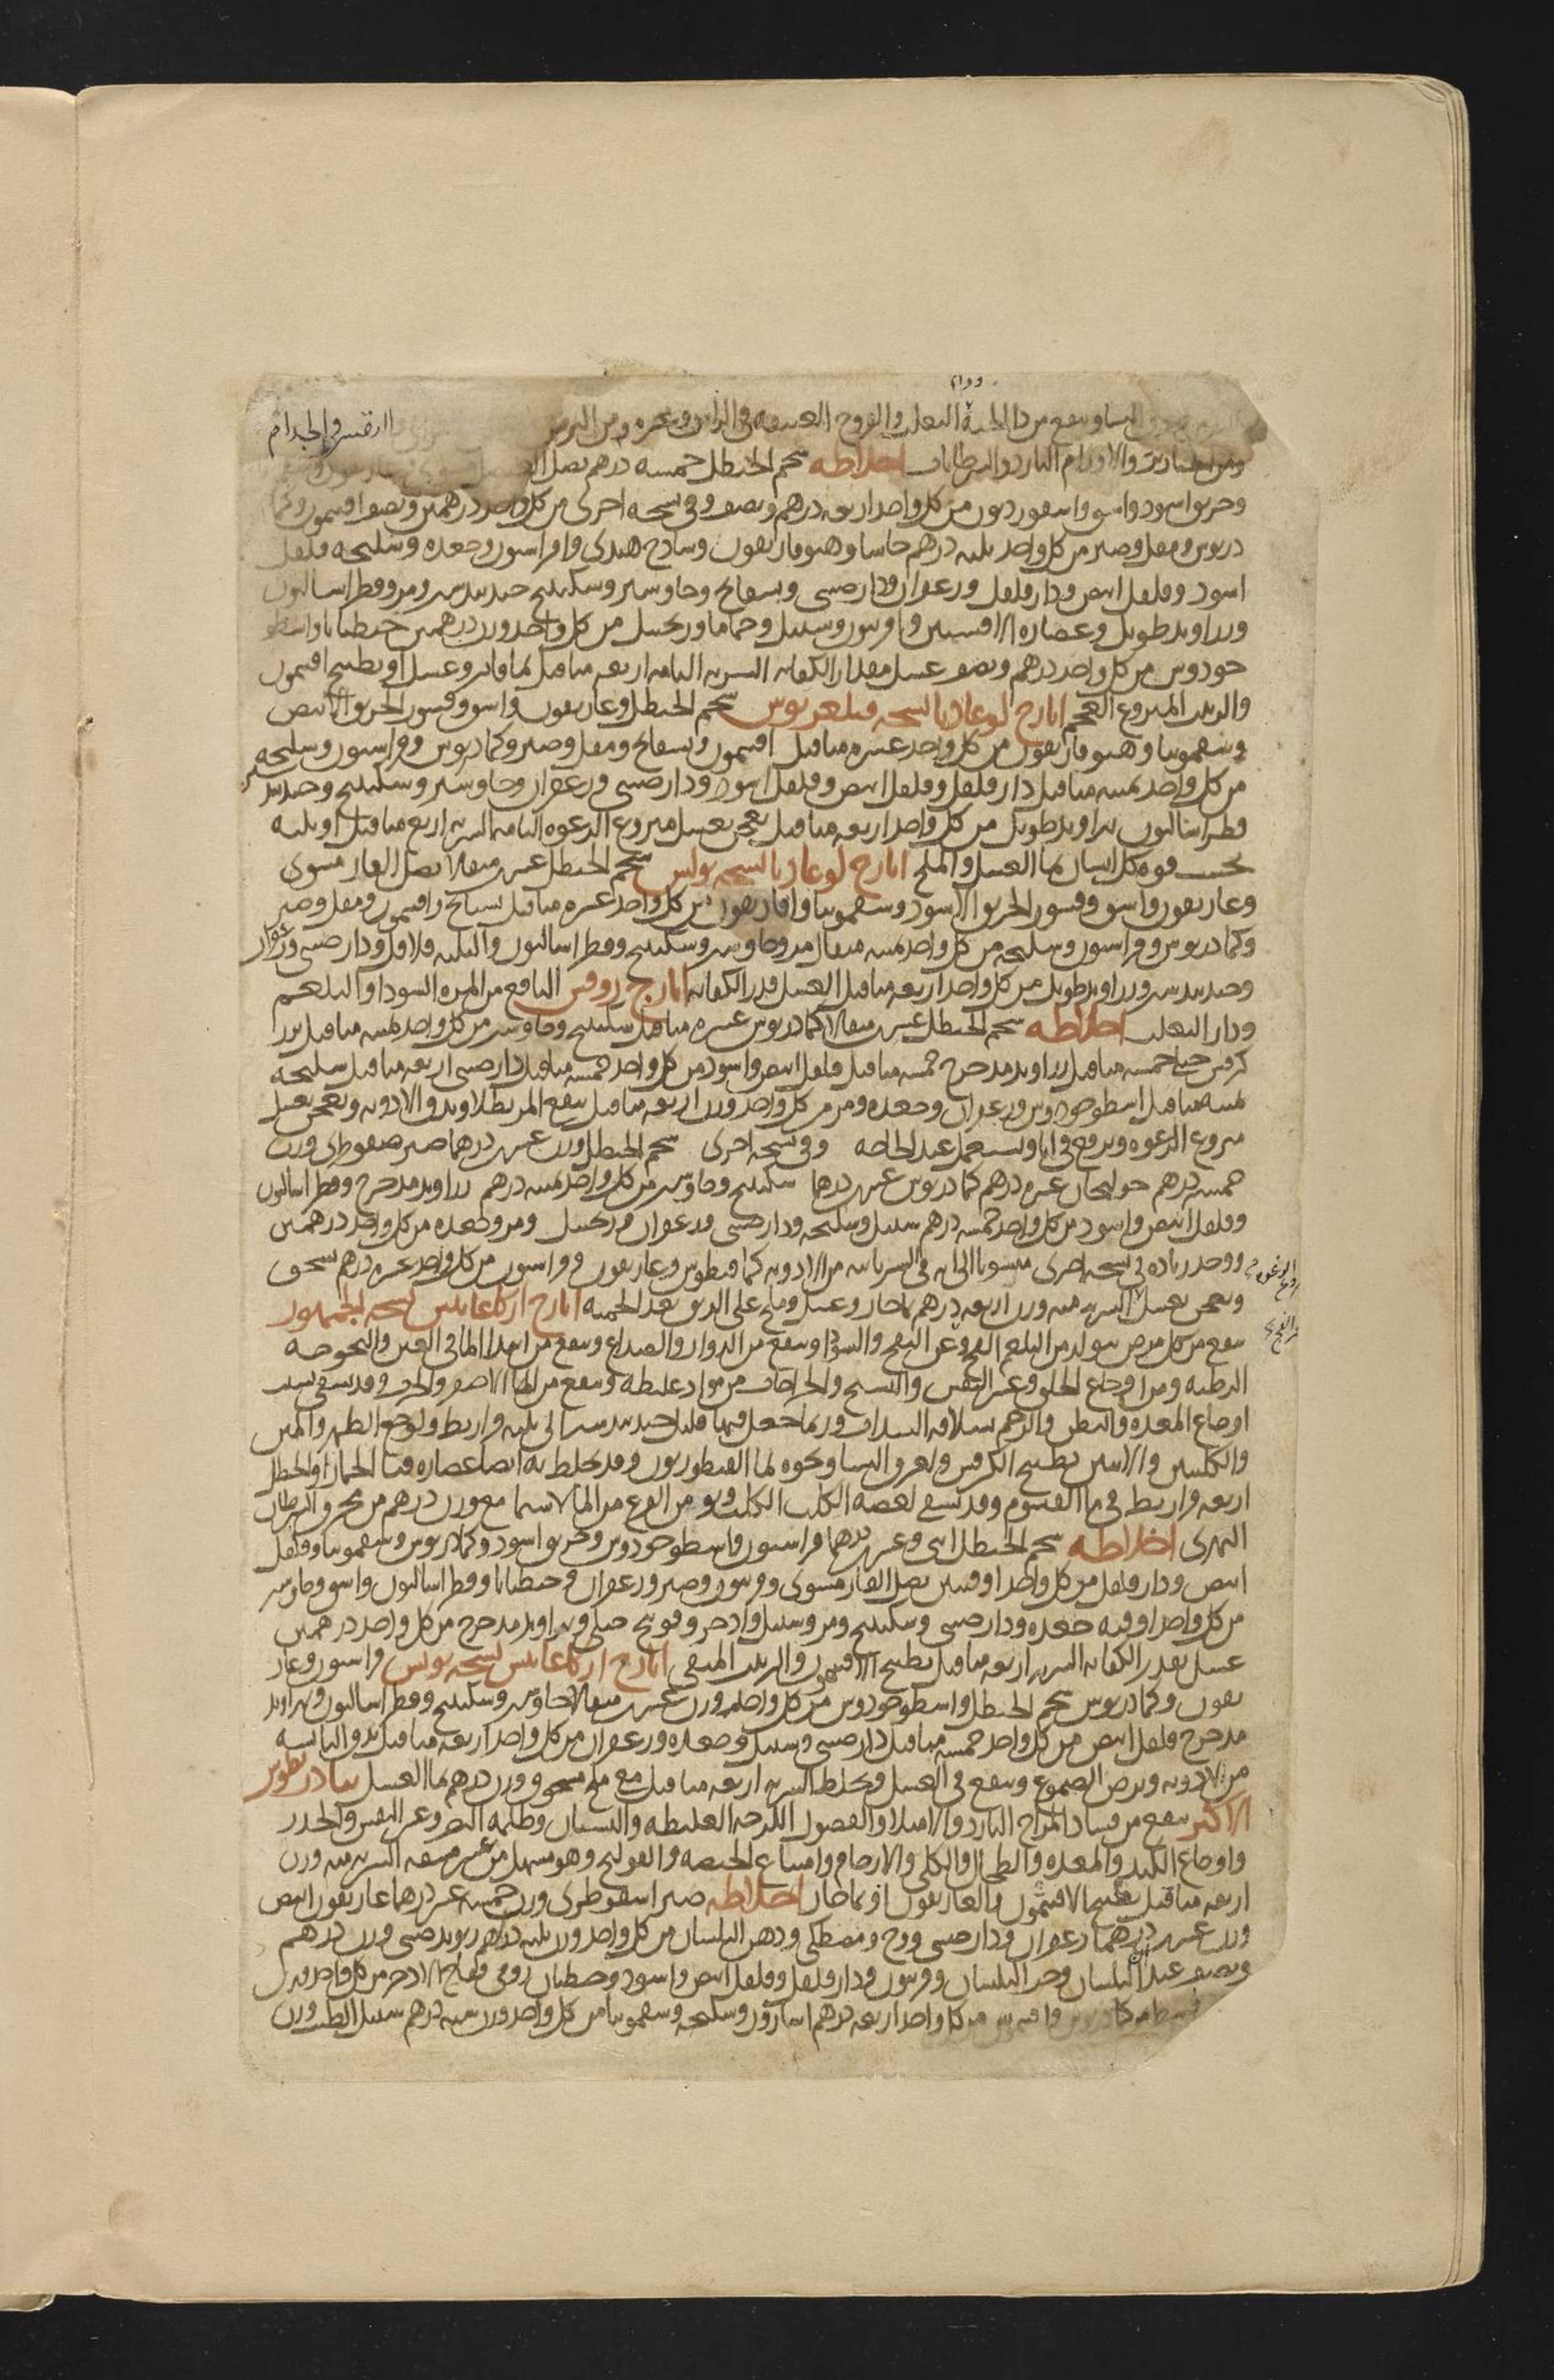 وينفع من دا الحية والثعلب والقروح العتيقة في الراس وغيره ومن البرص والجذام
والاورام الباردة والسرطانات اخلاطه شحم الحنظل خمسه درهم بصل
وخربق اسود واشق واسقورديون من كل واحد اربعه درهم ونصف وفي نسخه اخرى من كل واحد درهمين ونصف افتيمون وكما
دريوس ومقل وصبر من كل واحد ثلثه درهم حاشا وهيوفاريقون وساذج هندي وفراسيون وجعده وسليخه فلفل
اسود وفلفل ابيض ودار فلفل وزعفران ودارصيني وبسفايج وجاوشير وسكبينج جندبيدستر ومر وفطراساليون
وزراوند طويل وعصاره الافسنتين وفربيون وسنبل وحماما وزنجبيل من كل واحد وزن درهمين جنطيانا واسطو
خودوس من كل واحد درهم ونصف عسل مقدار الكفايه الشربه التامه اربعه مثاقيل بما فاتر وعسل او بطبيخ افتيمون
والزبيب المنزوع العجم ايارج لوغاذيا نسخه فيلغريوس شحم الحنظل وغاريقون واشق وقشور الخربق الابيض
وسقمونيا وهيوفاريقون من كل واحد عشره مثاقيل افتيمون وبسفايج ومقل وصبر وكمادريوس وفراسيون وسليخه
من كل واحد ثمنيه مثاقيل دار فلفل وفلفل ابيض وفلفل اسود ودارصيني وزعفران وجاوشير وسكبينج وجندبيد
فطراساليون زراوند طويل من كل واحد اربعه مثاقيل يعجن بعسل منزوع الرغوه التامه الشربه اربع مثاقيل او ثلثه
بحسب قوه كل انسان بما العسل والملح ايارج لوغاذيا نسخه بولس شحم الحنظل عشرين مثقالا بصل الفار مشوي
وغاريقون واشق وقشور الخربق الاسود وسقمونيا وهوفاريقون من كل واحد عشره مثاقيل بسبايج وافتيمون ومقل وصبر
وكمادريوس وفراسيون وسليخه من كل واحد ثمنيه مثقال مر وجاوشير وسكبينج وفطراساليون والثلثه فلافل ودارصيني وزعفران
وجندبيدستر وزراوند طويل من كل واحد اربعه مثاقيل العسل قدر الكفايه ايارج روفس النافع من المره السودا والبلغم
ودا الثعلب اخلاطه شحم الحنظل عشرين مثقالا كمادريوس عشره مثاقيل سكبينج وجاوشير من كل واحد ثمنيه مثاقيل بزر
كرفس جبلي خمسه مثاقيل زراوند مدحرج خمسه مثاقيل فلفل ابيض واسود من كل واحد خمسه مثاقيل دارصيني اربعه مثاقيل سليخه
ثمنيه مثاقيل اسطوخودوس وزعفران وجعده ومر من كل واحد وزن اربعه مثاقيل ينقع المر بطلا ويدق الادويه ويعجن بعسل
منزوع الرغوه ويرفع في انا ويستعمل عند الحاجه وفي نسخه اخرى شحم الحنظل وزن عشرين درهما صبر سقوطري وزن
خمسه درهم خولنجان عشره درهم كمادريوس عشرين درهما سكبينج وجاوشير من كل واحد ثمنيه درهم زراوند مدحرج وفطراساليون
وفلفل ابيض واسود من كل واحد خمسه درهم سنبل وسليخه ودارصيني وزعفران وزنجبيل ومر وجعده من كل واحد درهمين
ووجد زياده في نسخه اخرى منسوبا الى انه في السريانيه من الادويه كمافيطوس وغاريقون وفراسيون من كل واحد عشره درهم يسحق
ويعجن بعسل الشربه منه وزن اربعه درهم بما حار وعسل وملح على الريق بعد الحميه ايارج اركاغانيس نسخه الجمهور
ينفع من كل مرض يتولد من البلغم الفج وعن النفخ والسودا وينفع من الدوار والصداع وينفع من ابتدا الما في العين والبحوحه
الرطبه ومن اوجاع الحلق وعسر النفس والتشنج والجراحات من مواد غليظه وينفع من الما الاصفر والجرب وقد يسقى بسبب
اوجاع المعده والبطن والرحم بسلاقه السذاب وربما جعل فيها قليل جندبيدستر الى ثلثه قراريط ولوجع الظهر والمتن
والكليتين والانثيين بطبيخ الكرفس ولعرق النسا ونحوه بما القنطوريون وقد يخلط به ايضا عصاره قثا الحمار او الحنظل
اربعه قراريط في ما القيسوم وقد يسقى لعضه الكلب الكلب ومن الفزع من الما لا سيما مع وزن درهم من محرق السرطان
النهري اخلاطه شحم الحنظل اثني وعشرين درهما فراسيون واسطوخودوس وخربق اسود وكمادريوس وسقمونيا وفلفل
ابيض ودار فلفل من كل واحد اوقيتين بصل الفار مشوي وفربيون وصبر وزعفران وجنطيانا وفطراساليون واشق وجاوشير
من كل واحد اوقيه جعده ودارصيني وسكبينج ومر وسنبل واذخر وفوتنج جبلي وزراوند مدحرج من كل واحد درهمين
عسل بقدر الكفايه الشربه اربعه مثاقيل بطبيخ الافتيمون والزبيب المنقى ايارج اركاغانيس نسخه بولس فراسيون وغار
يقون وكمادريوس شحم الحنظل واسطوخودوس من كل واحد وزن عشرين مثقالا جاوشير وسكبينج وفطراساليون وزراوند
مدحرج فلفل ابيض من كل واحد خمسه مثاقيل دارصيني وسنبل وجعده وزعفران من كل واحد اربعه مثاقيل يدق اليابسه
من الادويه ويرض الصموغ وينقع في العسل ويخلط الشربه اربعه مثاقيل مع ملح مسحوق وزن درهم بما العسل تيادريطوس
الاكبر ينفع من فساد المزاج البارد والامتلا والفضول اللزجه الغليظه والنسيان وظلمه البصر وعسر النفس والخدر
واوجاع الكبد والمعده والطحال والكلى والارحام وامتناع الحيضه والقولنج وهو مسهل من غير مشقه الشربه منه وزن
اربعه مثاقيل بطبيخ الافتيمون والغاريقون او بما حار اخلاطه صبر اسقوطري وزن خمسه عشر درهما غاريقون ابيض
وزن عشرين درهما زعفران ودارصيني ووج ومصطكي ودهن البلسان من كل واحد وزن ثلثه درهم ريوند صيني وزن درهم
ونصف عيدان البلسان وحب البلسان وفربيون ودار فلفل وفلفل ابيض واسود وجنطيان رومي وفقاح الاذخر من كل واحد وزن
من كل واحد اربعه درهم اسارون وسليخه وسقمونيا من كل واحد وزن سته درهم سنبل الطيب وزن